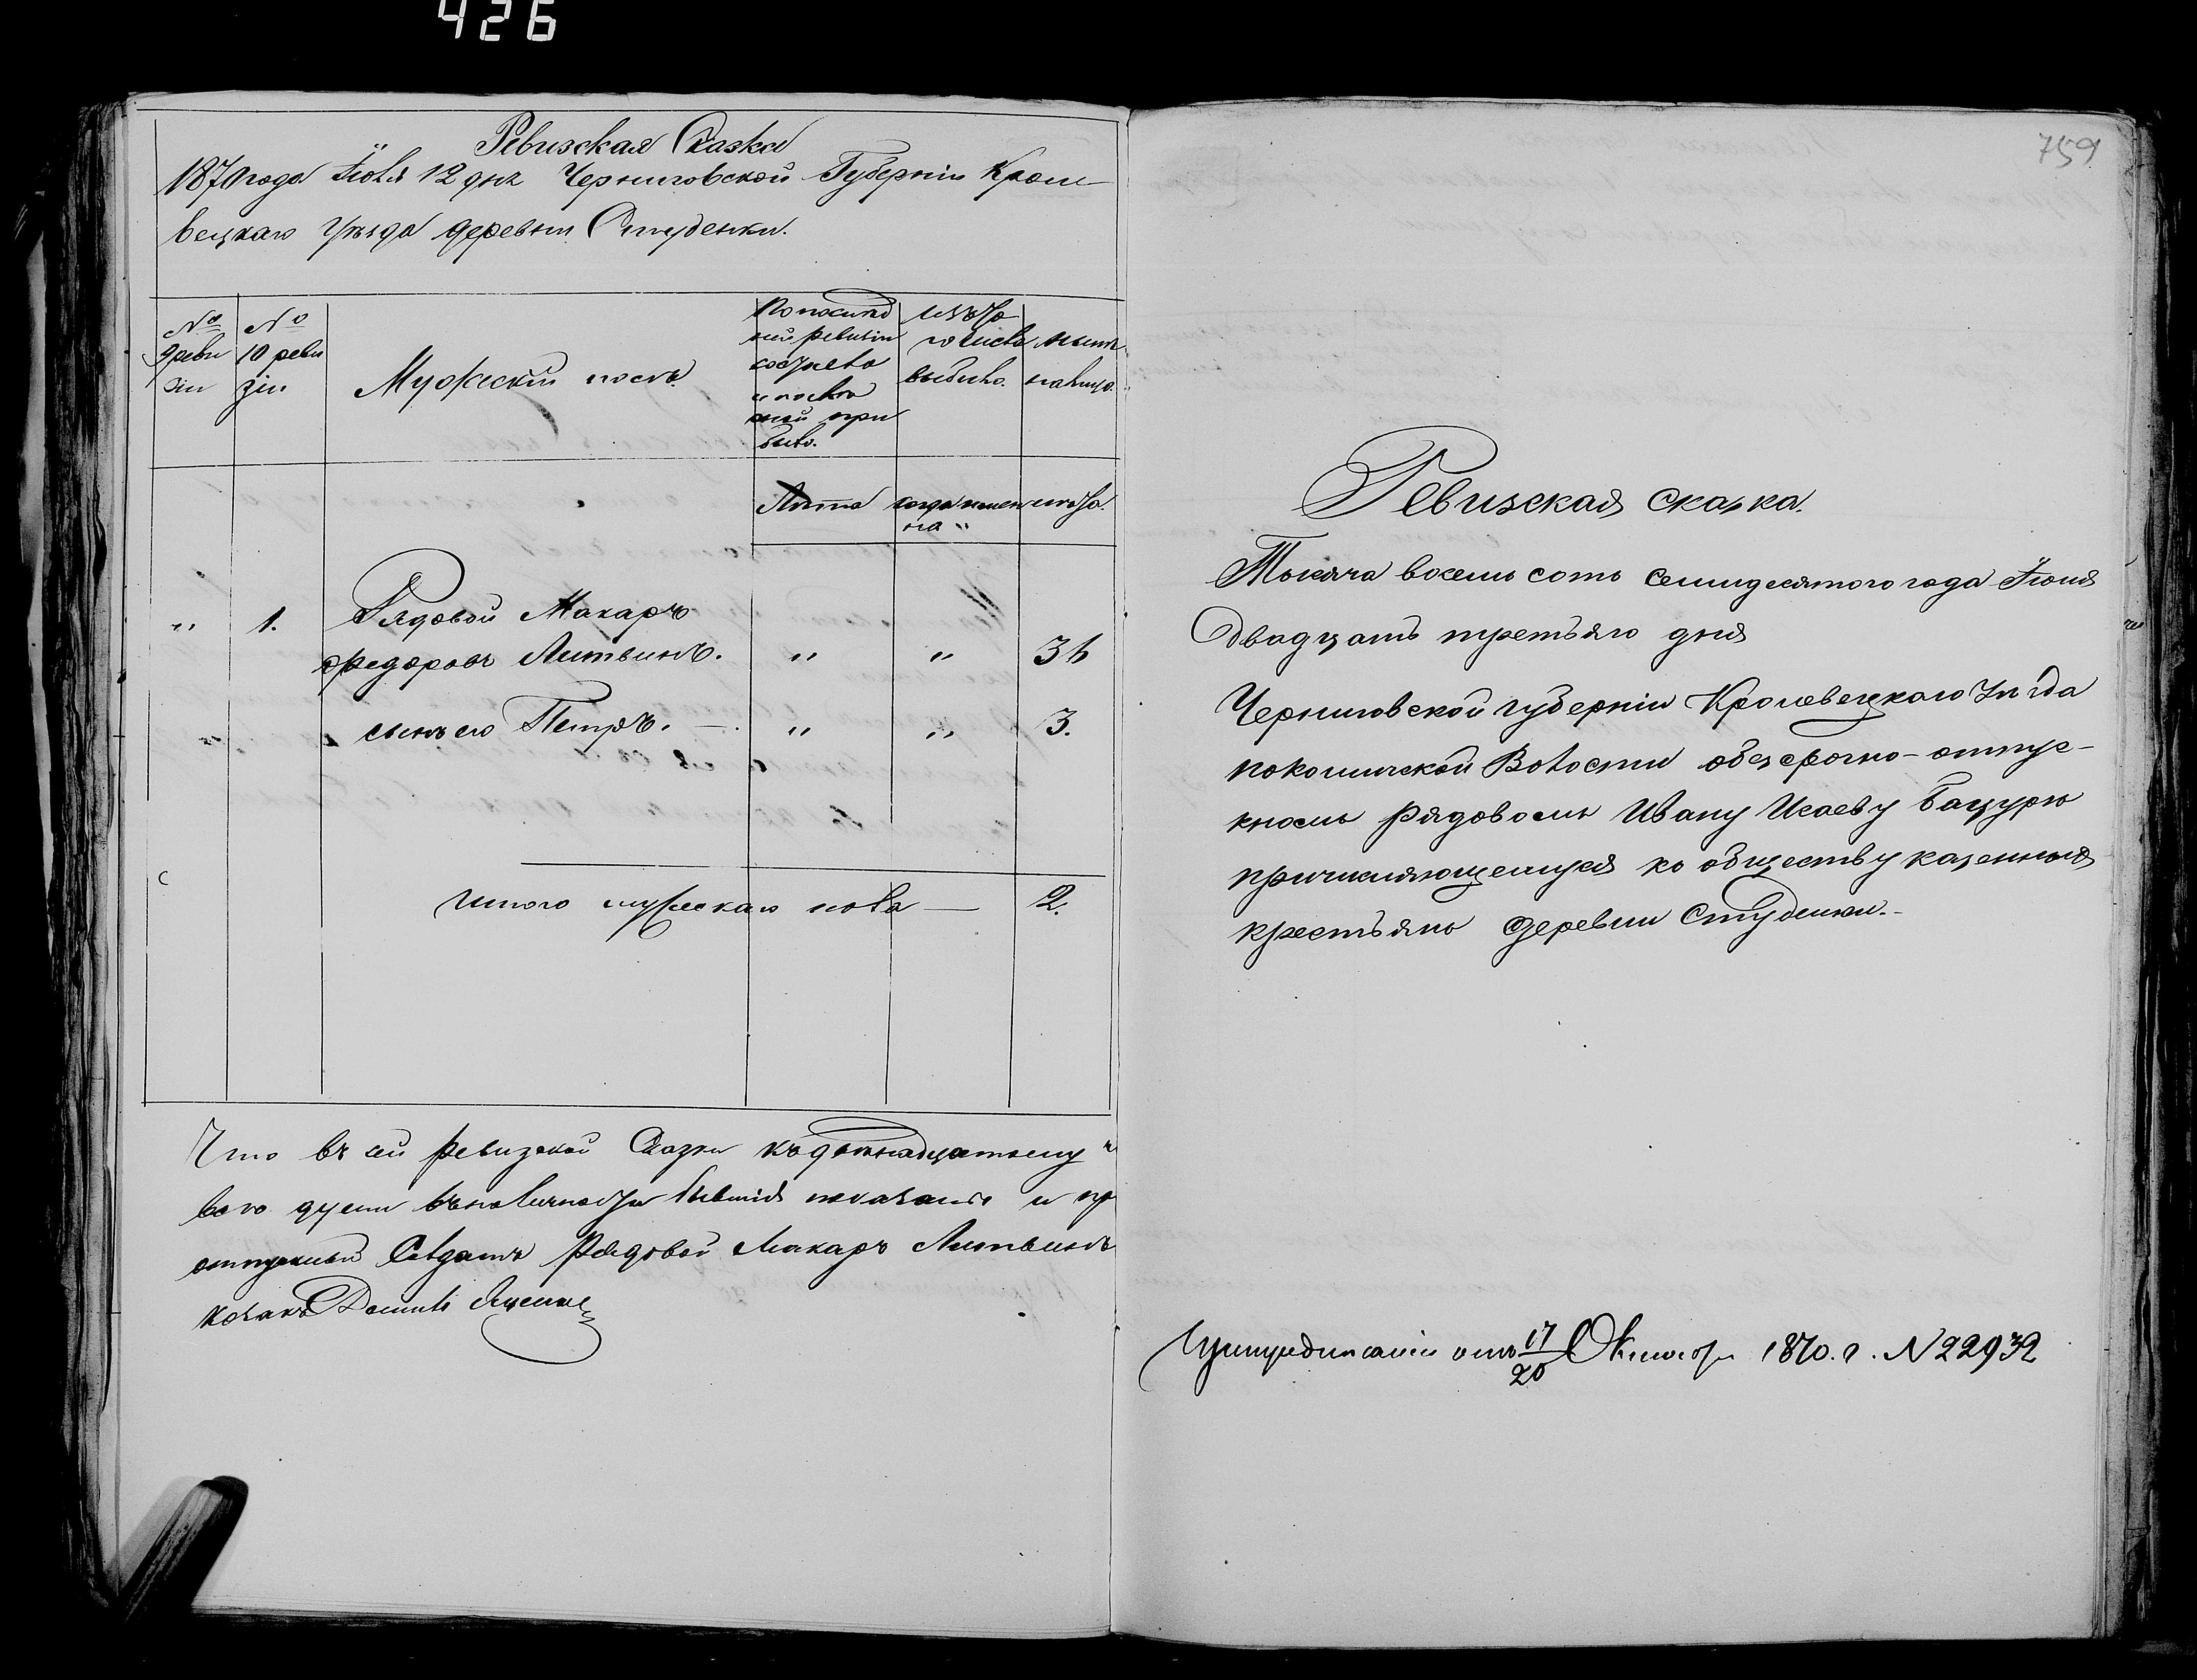 426
Ревизская Сказка
1870 года Іюля 12 дня Черниговской Губерніи Кроле-
вецкаго Уезда деревни Студенки.
№ 9 реви зіи
№ 10 реви зіи
Мужескій полъ.
По послед ней ревизіи состояло и после оной при было.
Изъ того числа выбыло.
Ныне на лицо.
Лета
когда имен но "
лета.
" 1. Рядовой Макаръ
Федоровъ Литвинъ. " " 36
" сынъ его Петръ. — " " 3.
Итого мужескаго пола — 2.
Что въ сей ревизской Сказки
вого души въ наличности бывшія показаны и пр
отпускный Солдатъ Рядовой Макаръ Литвинъ
козакъ
759
Ревизская сказка.
Тысяча восемь сотъ семидесятого года Іюня
двадцать третьяго дня
Черниговской губерніи Кролевецкаго Уезда
покошичской Волости обезсрочно-отпус-
кномъ рядовомъ Ивану Исаеву Бацуры
причисляющемуся ко обществу казенныхъ
крестьянъ деревни Студенки.-
При предписаніи отъ 17/20 Октября 1870. г. N 22932